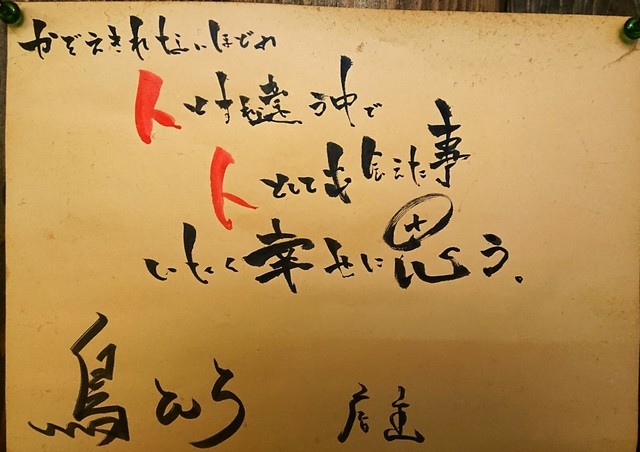 かぞえきれないほどの
人とすれ違う中で
人として出会えた事
いたく幸せに思う。
鳥ひろ 店主